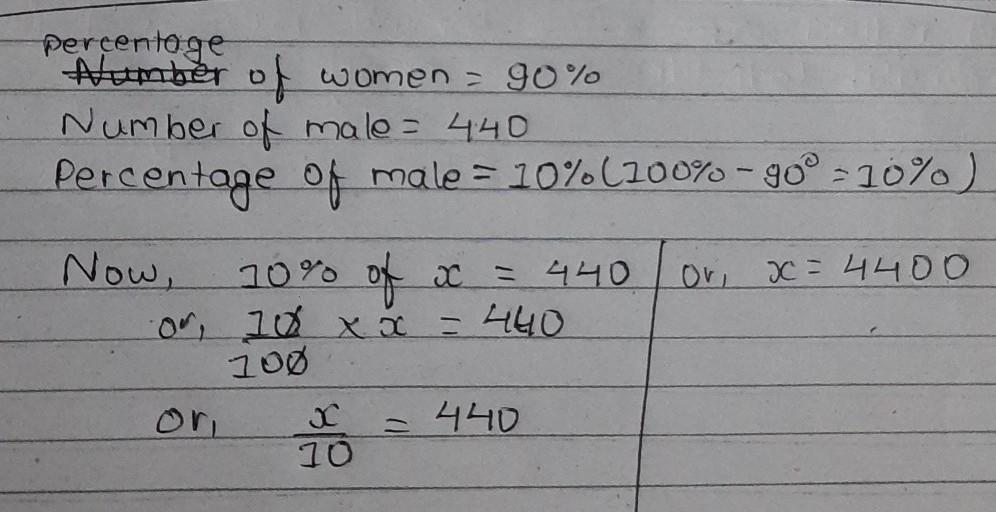 percentage
Number of women = 90%
Number of male = 440
Percentage of male = 10% (100% - 90° = 10%)
Now, 10% of x = 440
or, 10/100 × x = 440
or, x/10 = 440
or, x = 4400